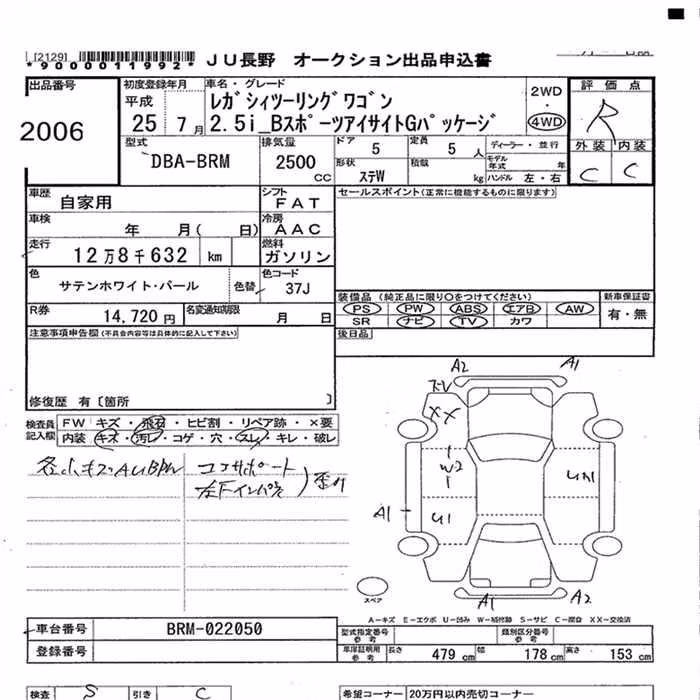 [2129]
*9000011992* JU長野 オークション出品申込書
出品番号
2006
初度登録年月
平成
25 7月
車名・グレード
レガシィツーリングワゴン
2.5i_BスポーツアイサイトGパッケージ
2WD
・
4WD
評価点
R
外装 内装
C C
型式
DBA-BRM
排気量
2500
cc
ドア 5
定員 5 人
ディーラー・並行
形状 ステW
積載 kg
モデル年式 年
ハンドル 左・右
車歴 自家用
シフト FAT
セールスポイント(正常に機能するものに限ります)
車検 年 月( 日)
冷房 AAC
走行 12万8千632 km
燃料 ガソリン
色 サテンホワイト・パール
色替
色コード 37J
装備品 (純正品に限り○をつけてください)
新車保証書
PS PW ABS エアB AW
SR ナビ TV カワ
有・無
R券 14,720円
名変通知期限 月 日
後日品
注意事項申告欄(不具合内容等は具体的に記入して下さい)
修復歴 有〔箇所 〕
検査員記入欄
FW キズ・飛石・ヒビ割・リペア跡・×要
内装 キズ・汚レ・コゲ・穴・スレ・キレ・破レ
各小キズ・AUBPW
コアサポート
左下インパネ
A2 A1
XX
W2
U1
A1
A1 A2
スペア
A-キズ E-エクボ U-凹み W-補修跡 S-サビ C-腐食 XX-交換済
車台番号 BRM-022050
登録番号
型式指定番号 参考
類別区分番号 参考
車庫証明用 参考
長さ 479 cm
幅 178 cm
高さ 153 cm
検査 S
引き C
希望コーナー 20万円以内売切コーナー